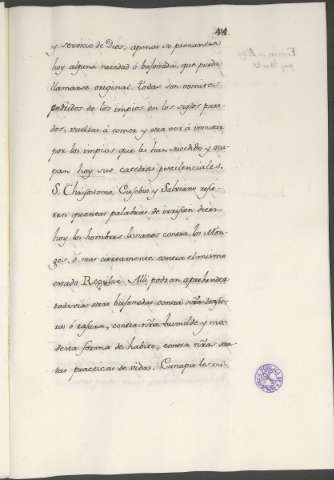 44
y servicio de Dios, apenas se pronuncia
hoy alguna necedad ó bufonada, que pueda
llamarse original. Todas son vomitos
podridos de los impios en los siglos pasa-
dos, vueltas á comer y otra vez á vomitar
por los impios que les han sucedido y ocu-
pan hoy sus catedras pestilenciales.
S. Chrisostomo, Eusebio y Salviano refie-
ren quantas palabras de irrision dicen
hoy los hombres livianos contra los Mon-
ges, ó mas ciertamente contra el mismo
estado Religioso. Alli podran aprehender
todavia otras bufonadas contra nřa
ra ó rasura, contra nřa humilde y mo-
desta forma de habito, contra nřas san-
tas practicas de vida. Eunapio les mi-